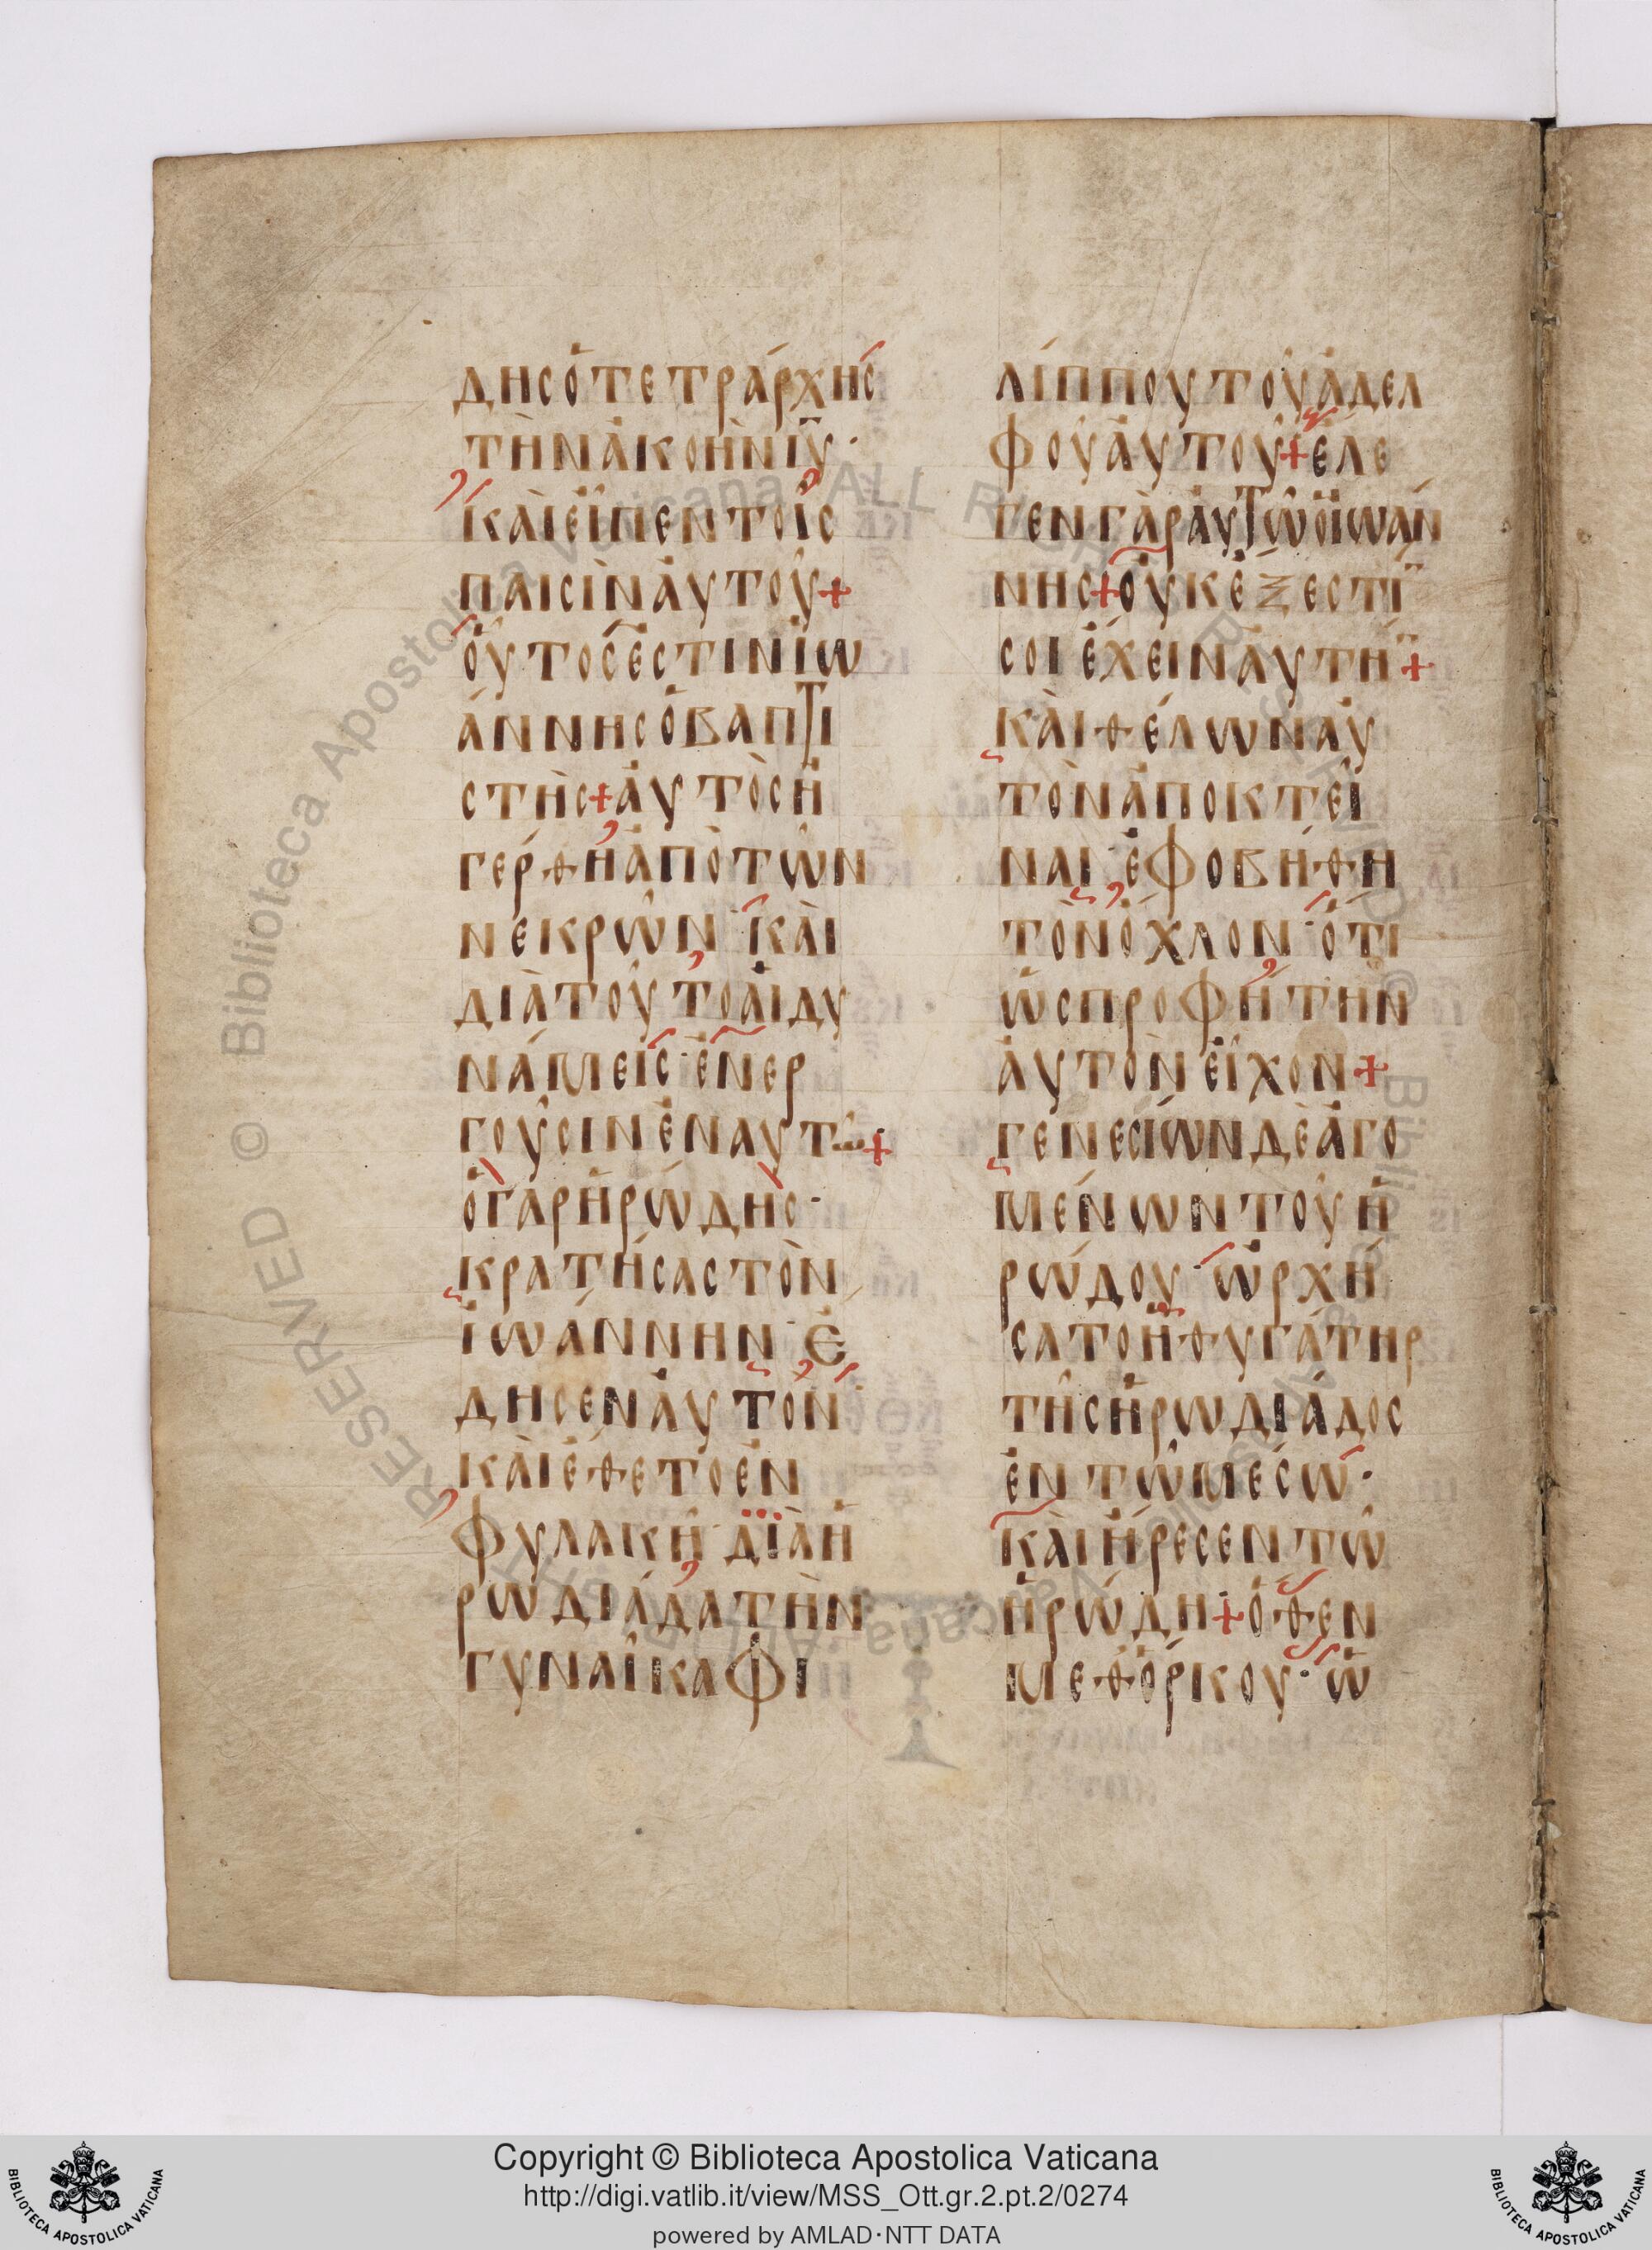 δησὁτετράρχης
τὴνἀκοὴνιῡ·
καὶεἶπεντοῖς
παισὶναὐτοῦ+
οὗτοςἐστινἰω
άννηςὁβαπτι
στὴς+αὐτὸςἠ
γέρθηἀπὸτῶν
νεκρῶν·καὶ
διὰτοῦτοαἱδυ
νάμεις·ἐνερ
γοῦσινἐναυτῶ+
ὁγὰρἡρώδης·
κρατήσαςτὸν
ἰωάννην·ἔ
δησεναὐτὸν·
καὶἔθετοἐν
φυλακῆ·διὰἡ
ρωδιάδατὴν
γυναῖκαφι
λίππουτοῦἀδελ
φοῦαὐτοῦ+ἔλε
γενγὰραὐτῶὁϊωάν
νης+οὐκέξεστί
σοιἔχειναὐτή+
καὶθέλωναὐ
τὸνἀποκτεῖ
ναι·ἐφοβήθη
τὸνὄχλον·ὅτι
ὡςπροφήτην
αὐτὸνεἶχον+
γενεσίωνδὲἀγο
μένωντοῦἡ
ρώδου·ὠρχή
σατοἡθυγάτηρ
τῆςἡρωδιάδος
ἐντῶμέσω·
καὶἤρεσεντῶ
ἡρώδη+ὅθεν
μεθόρκου·ὡ
Copyright © Biblioteca Apostolica Vaticana
http://digi.vatlib.it/view/MSS_Ott.gr.2.pt.2/0274
powered by AMLAD·NTT DATA
BIBLIOTECA APOSTOLICA VATICANA
BIBLIOTECA APOSTOLICA VATICANA